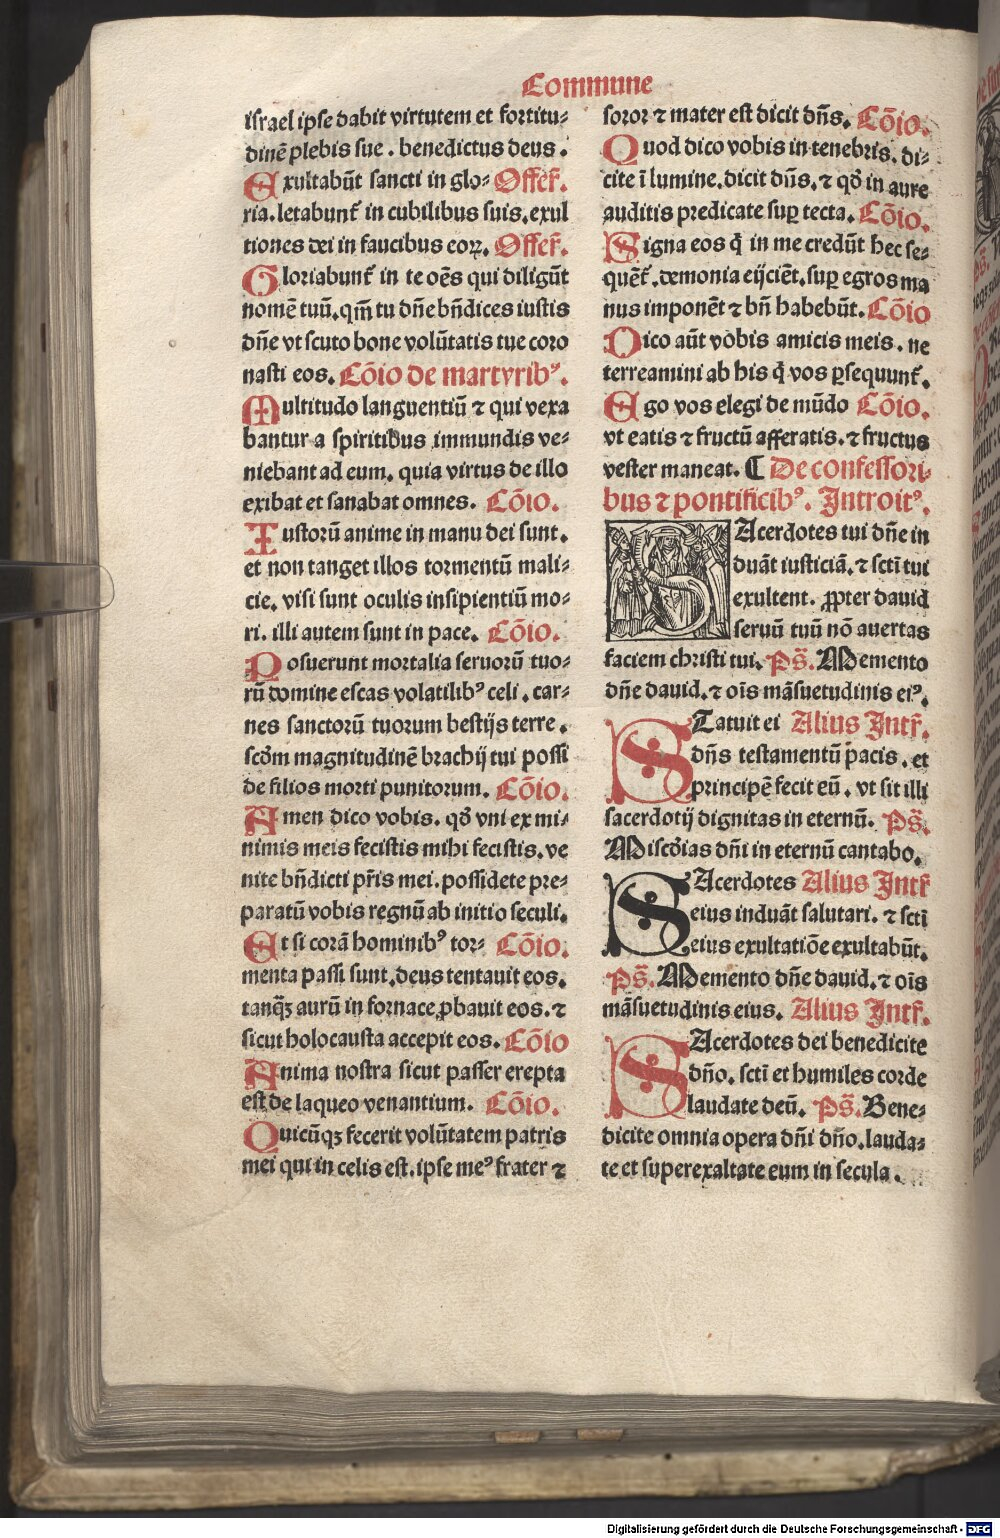 Commune
israel ipse dabit virtutem et fortitu⸗
dinē plebis sue . benedictus deus .
Exultabūt sancti in glo⸗ Offer̄.
ria. letabunt̄ in cubilibus suis. exul
tiones dei in faucibus eoꝝ. Offer̄.
Gloriabunt̄ in te oēs qui diligūt
nomē tuū. qm̄ tu dn̄e bn̄dices iustis
dn̄e vt scuto bone volūtatis tue coro
nasti eos. Cōio de martyribꝰ.
Multitudo languentiū ⁊ qui vexa
bantur a spiritibus immundis ve⸗
niebant ad eum. quia virtus de illo
exibat et sanabat omnes. Cōio.
Iustorū anime in manu dei sunt.
et non tanget illos tormentū mali⸗
cie. visi sunt oculis insipientiū mo⸗
ri. illi autem sunt in pace. Cōio.
Posuerunt mortalia seruorū tuo⸗
rū domine escas volatilibꝰ celi . car⸗
nes sanctorū tuorum bestijs terre .
scd̄m magnitudinē brachij tui possi
de filios morti punitorum. Cōio.
Amen dico vobis. qd̄ vni ex mi⸗
nimis meis fecistis mihi fecistis. ve
nite bn̄dicti pr̄is mei. possidete pre⸗
paratū vobis regnū ab initio seculi.
Et si corā hominibꝰ tor⸗ Cōio.
menta passi sunt. deus tentauit eos.
tanq̄ꝫ aurū in fornace ꝓbauit eos. ⁊
sicut holocausta accepit eos. Cōio
Anima nostra sicut passer erepta
est de laqueo venantium. Cōio.
Quicūqꝫ fecerit volūtatem patris
mei qui in celis est. ipse meꝰ frater ⁊
soror ⁊ mater est dicit dn̄s. Cōio.
Quod dico vobis in tenebris. di⸗
cite ī lumine. dicit dn̄s. ⁊ qd̄ in aure
auditis predicate suꝑ tecta. Cōio.
Signa eos q̄ in me credūt hec se⸗
quēt̄. demonia eijciēt. suꝑ egros ma
nus imponēt ⁊ bn̄ habebūt. Cōio
Dico aūt vobis amicis meis . ne
terreamini ab his q̄ vos ꝑsequunt̄.
Ego vos elegi de mūdo Cōio.
vt eatis ⁊ fructū afferatis. ⁊ fructus
vester maneat. ¶ De confessori⸗
bus ⁊ pontificibꝰ. Introitꝰ.
SAcerdotes tui dn̄e in
duāt iusticiā. ⁊ sctī tui
exultent. ꝓpter dauid
seruū tuū nō auertas
faciem christi tui. Ps̄. Memento
dn̄e dauid. ⁊ oīs māsuetudinis eiꝰ.
STatuit ei Alius Intr̄.
dn̄s testamentū pacis . et
principē fecit eū . vt sit illi
sacerdotij dignitas in eternū. Ps̄.
Miscd̄ias dn̄i in eternū cantabo.
SAcerdotes Alius Intr̄
eius induāt salutari. ⁊ sctī
eius exultatiōe exultabūt.
Ps̄. Memento dn̄e dauid. ⁊ oīs
māsuetudinis eius. Alius Intr̄.
SAcerdotes dei benedicite
dn̄o. sctī et humiles corde
laudate deū. Ps̄. Bene⸗
dicite omnia opera dn̄i dn̄o. lauda⸗
te et superexaltate eum in secula .
Digitalisierung gefördert durch die Deutsche Forschungsgemeinschaft - DFG